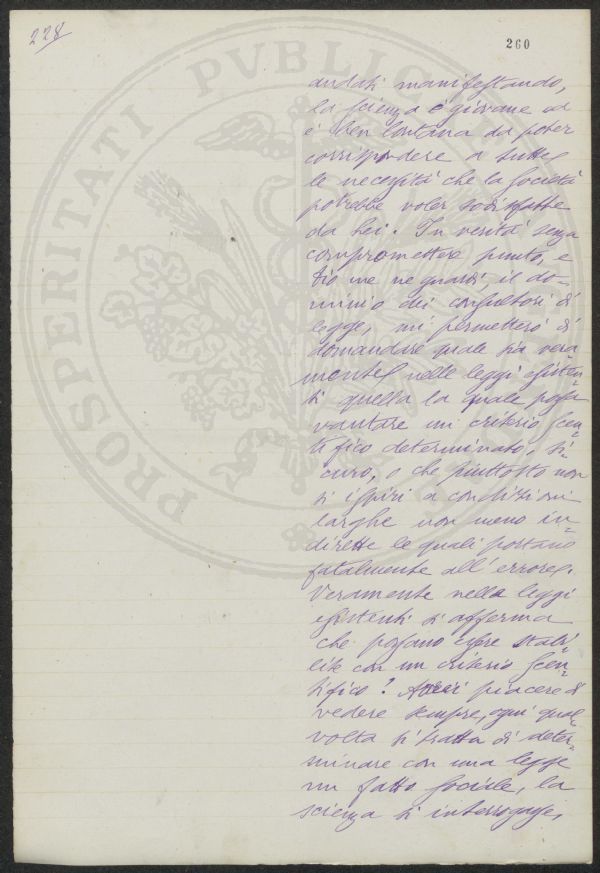 228
260
PROSPERITATI PVBLICAE
andati manifestando,
la scienza è giovane ed
è ben lontana da poter
corrispondere a tutte
le necessità che la società
potrebbe voler sodisfatte
da lei. In verità senza
compromettere punto, e
Dio me ne guardi, il do=
minio dei consultori di
legge, mi permetterò di
domandare quale sia vera=
mente nelle leggi esisten=
ti quella la quale possa
vantare un criterio scen=
tifico determinato, si=
curo, o che piuttosto non
si ispiri a condizioni
larghe non meno in=
dirette le quali portano
fatalmente all'errore.
Veramente nelle leggi
esistenti si afferma
che possano essere stabi=
lite con un criterio scen=
tifico? Avrei piacere di
vedere sempre, ogni qual=
volta si tratta di deter=
minare con una legge
un fatto sociale, la
scienza si interrogasse,